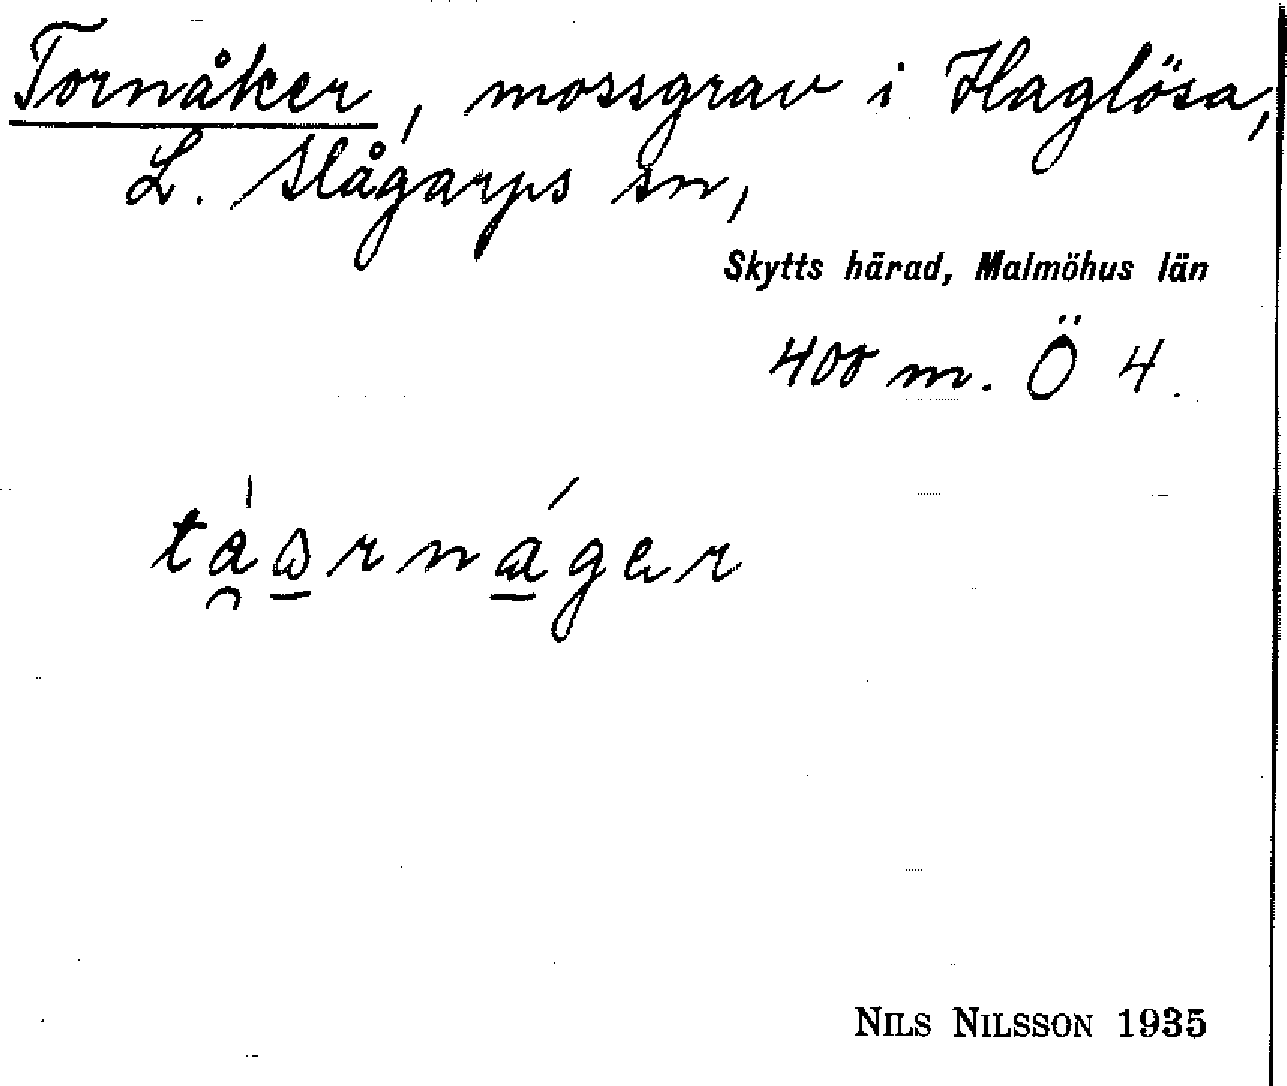 Tornåker, mossgrav i Haglösa,
L. Slågarps sn,
Skytts härad, Malmöhus län
400 m. Ö 4.
NILS NILSSON 1935